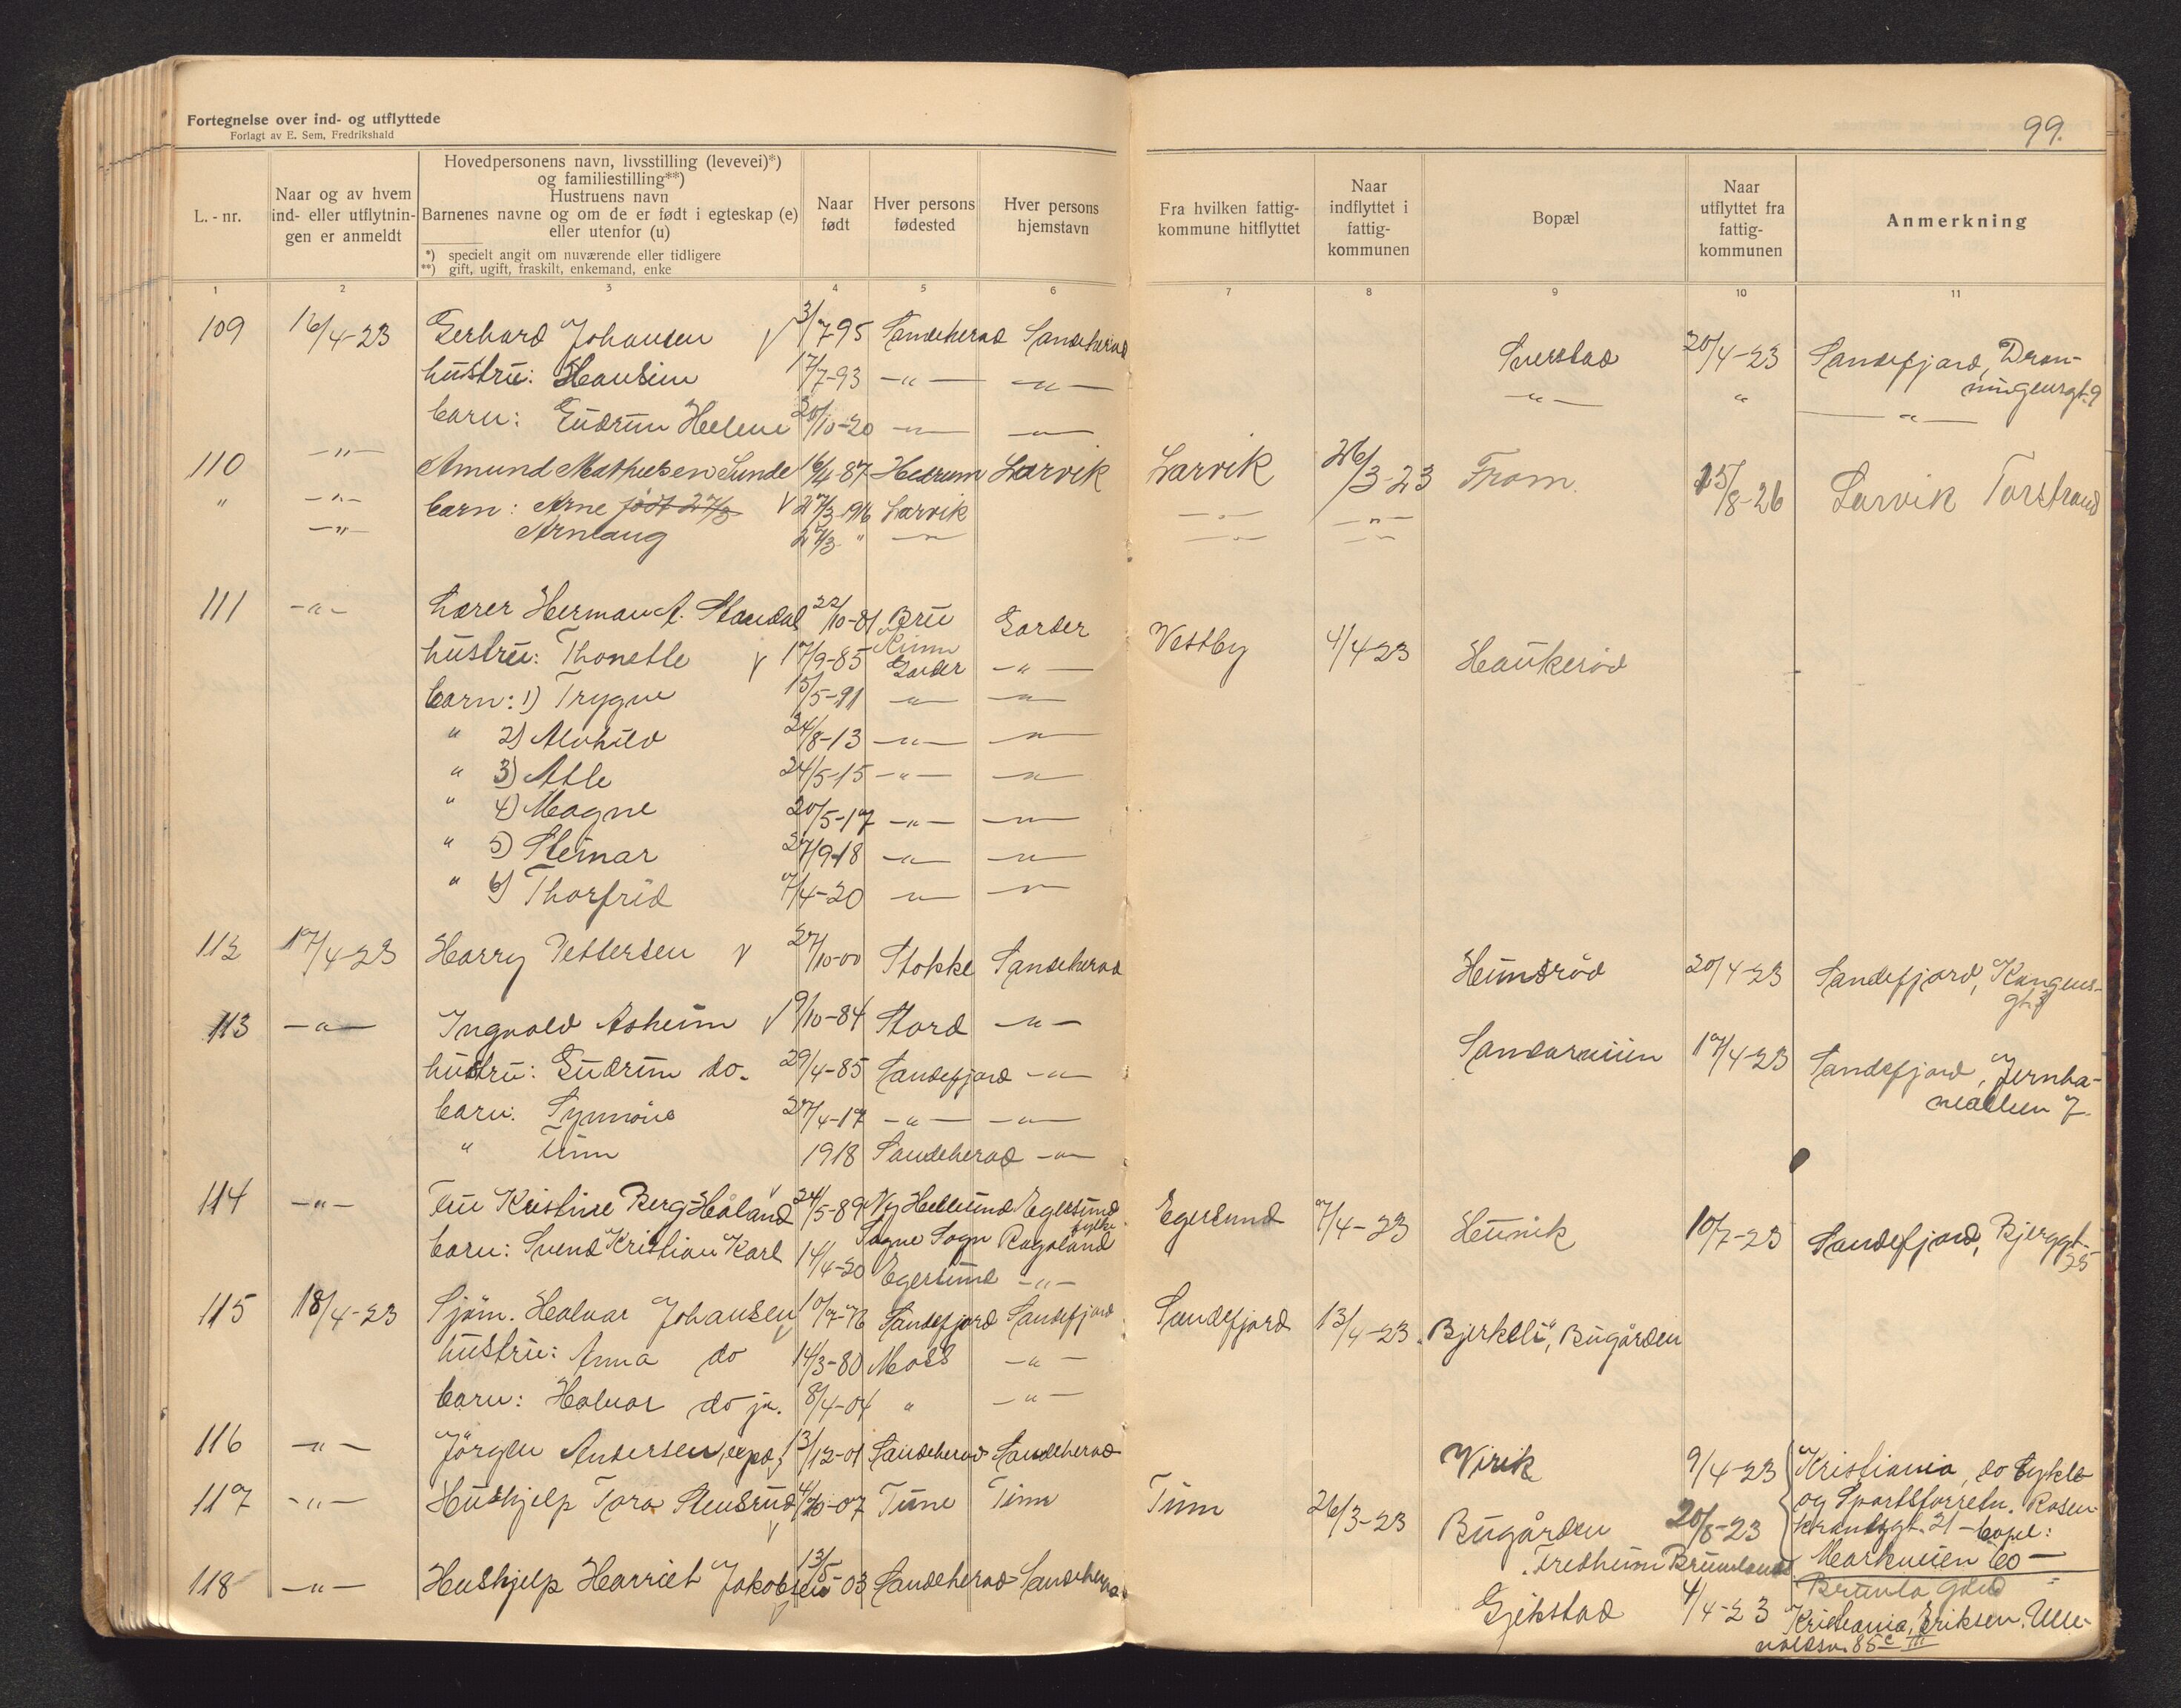 Fortegnelse over ind- og utflyttede
Forlagt av E. Sem, Fredrikshald
99.
L. - nr.
Naar og av hvem
ind- eller utflytnin-
gen er anmeldt
Hovedpersonens navn, livsstilling (levevei)*)
og familiestilling**)
Hustruens navn
Barnenes navne og om de er født i egteskap (e)
eller utenfor (u)
*) specielt angit om nuværende eller tidligere
**) gift, ugift, fraskilt, enkemand, enke
Naar
født
Hver persons
fødested
Hver persons
hjemstavn
Fra hvilken fattig-
kommune hitflyttet
Naar
indflyttet i
fattig-
kommunen
Bopæl
Naar
utflyttet fra
fattig-
kommunen
Anmerkning
1 2 3 4 5 6 7 8 9 10 11
109 16/4-23 Gerhard Johansen V 3/7 95 Sandeherad Sandeherad
hustru: Hansine 17/7-93 -"- -"-
Sverstad 20/4-23 Sandefjord, Dron-
ningensgt. 9
barn: Gudrun Helene 20/10-20 -"- -"-
-"- " -"-
110 -"- Amund Mathiesen Sunde 16/4-87 Hedrum Larvik Larvik 26/3-23 Fram. 15/8-26 Larvik Torstrand
" -"- barn: Arne født 27/3 V 27/3 1916 Larvik -"- -"-
-"- Arnlaug 27/3 " -"- -"- -"-
111 -"- Lærer Herman A. Standal 22/10-81 Bru Garder Vestby 4/4-23 Haukerød
hustru: Thonette V 17/9-85 Garder -"-
barn: 1) Trygve 15/5-11 -"- -"-
" 2) Alvhild 24/8-13 -"- -"-
" 3) Atle 24/5-15 -"- -"-
" 4) Magne 20/5-17 -"- -"-
" 5) Steinar 27/9-18 -"- -"-
" 6) Thorfrid 7/4-20 -"- -"-
112 17/4-23 Harry Pettersen V 27/10-00 Stokke Sandeherad Hunsrød 20/4-23 Sandefjord, Kongens-
gt. 3
113 -"- Ingvald Asheim V 19/10-84 Stord -"- Sandarveien 17/4-23 Sandefjord, Jernba-
nealleen 7.
hustru: Gudrun do. 29/4-85 Sandefjord -"-
barn: Synnøve 27/4-17 -"- -"-
" Unn 1918 Sandeherad -"-
114 -"- Fru Kristine Berg-Håland V 24/5-89 Ny Hellesund Egersund Egersund 7/4-23 Hunik 10/7-23 Sandefjord, Bjerggt.
25
Søgne Sogn Rogaland fylke
barn: Svend Kristian Karl 14/4-20 Egersund -"-
115 18/4-23 Sjøm. Halvar Johansen V 10/7-76 Sandefjord Sandefjord Sandefjord 13/4-23 "Bjerkeli", Bugården
hustru: Anna do 14/3-80 Moss -"-
barn: Halvar do jr. 8/4-04 " -"-
116 -"- Jörgen Andersen, exped. 13/12-01 Sandeherad Sandeherad Virik 9/4-23 Kristiania, do Cykle
og Sportsforretn. Rosen-
krantzgt. 21 - bopel:
Markveien 60 -
117 -"- Hushjelp Tora Stensrud V 4/10-07 Tune Tune Tune 26/3-23 Bugården 20/8-23
Fredheim Brunlanes Brunla Gård
118 -"- Hushjelp Harriet Jakobsen V 13/5-03 Sandeherad Sandeherad Gjekstad 4/4-23 Kristiania, Eriksen, Ulle-
voldsv. 85 c III